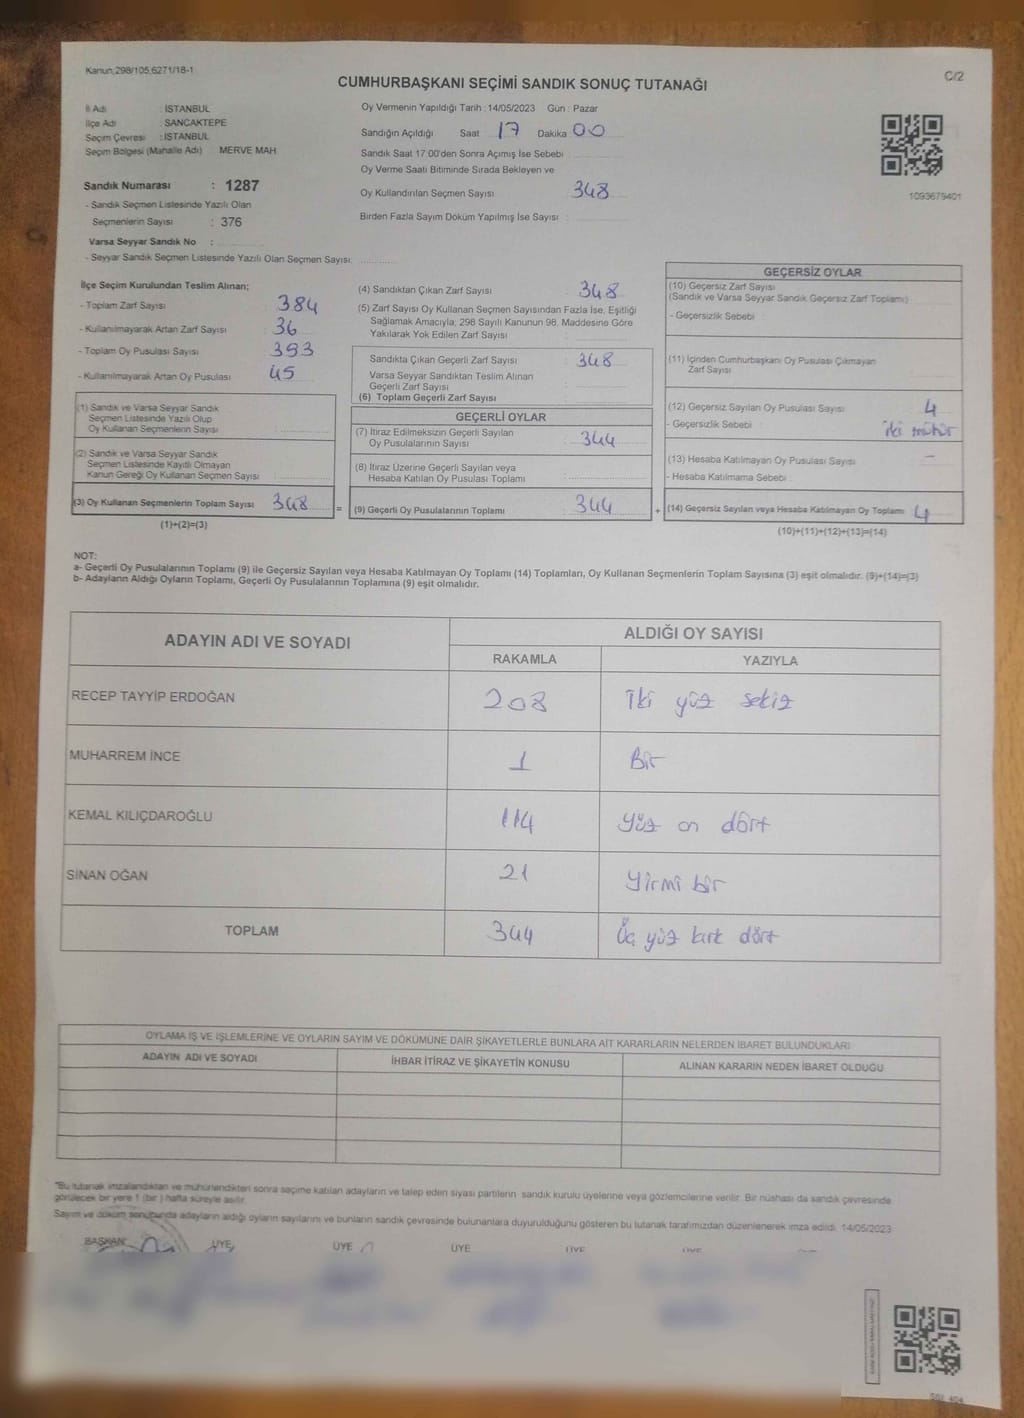 Kanun,298/105,6271/18-1
C/2
CUMHURBAŞKANI SEÇİMİ SANDIK SONUÇ TUTANAĞI
İl Adı : İSTANBUL
İlçe Adı : SANCAKTEPE
Seçim Çevresi : İSTANBUL
Seçim Bölgesi (Mahalle Adı) MERVE MAH.
Sandık Numarası : 1287
- Sandık Seçmen Listesinde Yazılı Olan
Seçmenlerin Sayısı : 376
Varsa Seyyar Sandık No :
- Seyyar Sandık Seçmen Listesinde Yazılı Olan Seçmen Sayısı:
Oy Vermenin Yapıldığı Tarih : 14/05/2023 Gün : Pazar
Sandığın Açıldığı Saat 17 Dakika 00
Sandık Saat 17:00'den Sonra Açımış İse Sebebi :
Oy Verme Saati Bitiminde Sırada Bekleyen ve
Oy Kullandırılan Seçmen Sayısı 348
Birden Fazla Sayım Döküm Yapılmış İse Sayısı :
1093679401
İlçe Seçim Kurulundan Teslim Alınan;
- Toplam Zarf Sayısı 384
- Kullanılmayarak Artan Zarf Sayısı 36
- Toplam Oy Pusulası Sayısı 393
- Kullanılmayarak Artan Oy Pusulası 45
(1) Sandık ve Varsa Seyyar Sandık
Seçmen Listesinde Yazılı Olup
Oy Kullanan Seçmenlerin Sayısı :
(2) Sandık ve Varsa Seyyar Sandık
Seçmen Listesinde Kayıtlı Olmayan
Kanun Gereği Oy Kullanan Seçmen Sayısı :
(3) Oy Kullanan Seçmenlerin Toplam Sayısı 348
(1)+(2)=(3)
(4) Sandıktan Çıkan Zarf Sayısı : 348
(5) Zarf Sayısı Oy Kullanan Seçmen Sayısından Fazla İse, Eşitliği
Sağlamak Amacıyla; 298 Sayılı Kanunun 98. Maddesine Göre
Yakılarak Yok Edilen Zarf Sayısı :
Sandıkta Çıkan Geçerli Zarf Sayısı : 348
Varsa Seyyar Sandıktan Teslim Alınan
Geçerli Zarf Sayısı :
(6) Toplam Geçerli Zarf Sayısı :
GEÇERLİ OYLAR
(7) İtiraz Edilmeksizin Geçerli Sayılan
Oy Pusulalarının Sayısı : 344
(8) İtiraz Üzerine Geçerli Sayılan veya
Hesaba Katılan Oy Pusulası Toplamı :
= (9) Geçerli Oy Pusulalarının Toplamı : 344
GEÇERSİZ OYLAR
(10) Geçersiz Zarf Sayısı
(Sandık ve Varsa Seyyar Sandık Geçersiz Zarf Toplamı)
- Geçersizlik Sebebi :
(11) İçinden Cumhurbaşkanı Oy Pusulası Çıkmayan
Zarf Sayısı
(12) Geçersiz Sayılan Oy Pusulası Sayısı 4
- Geçersizlik Sebebi : iki mühür
(13) Hesaba Katılmayan Oy Pusulası Sayısı -
- Hesaba Katılmama Sebebi :
+ (14) Geçersiz Sayılan veya Hesaba Katılmayan Oy Toplamı 4
(10)+(11)+(12)+(13)=(14)
NOT:
a- Geçerli Oy Pusulalarının Toplamı (9) ile Geçersiz Sayılan veya Hesaba Katılmayan Oy Toplamı (14) Toplamları, Oy Kullanan Seçmenlerin Toplam Sayısına (3) eşit olmalıdır. (9)+(14)=(3)
b- Adayların Aldığı Oyların Toplamı, Geçerli Oy Pusulalarının Toplamına (9) eşit olmalıdır.
ADAYIN ADI VE SOYADI ALDIĞI OY SAYISI
RAKAMLA YAZIYLA
RECEP TAYYİP ERDOĞAN 208 İki yüz sekiz
MUHARREM İNCE 1 Bir
KEMAL KILIÇDAROĞLU 114 yüz on dört
SİNAN OĞAN 21 yirmi bir
TOPLAM 344 Üç yüz kırk dört
OYLAMA İŞ VE İŞLEMLERİNE VE OYLARIN SAYIM VE DÖKÜMÜNE DAİR ŞİKAYETLERLE BUNLARA AİT KARARLARIN NELERDEN İBARET BULUNDUKLARI
ADAYIN ADI VE SOYADI İHBAR İTİRAZ VE ŞİKAYETİN KONUSU ALINAN KARARIN NEDEN İBARET OLDUĞU
"Bu tutanak imzalandıktan ve mühürlendikten sonra seçime katılan adayların ve talep eden siyasi partilerin sandık kurulu üyelerine veya gözlemcilerine verilir. Bir nüshası da sandık çevresinde
görülecek bir yere 1 (bir ) hafta süreyle asılır.
Sayım ve döküm sonucunda adayların aldığı oyların sayılarını ve bunların sandık çevresinde bulunanlara duyurulduğunu gösteren bu tutanak tarafımızdan düzenlenerek imza edildi. 14/05/2023
BAŞKAN ÜYE ÜYE ÜYE ÜYE ÜYE